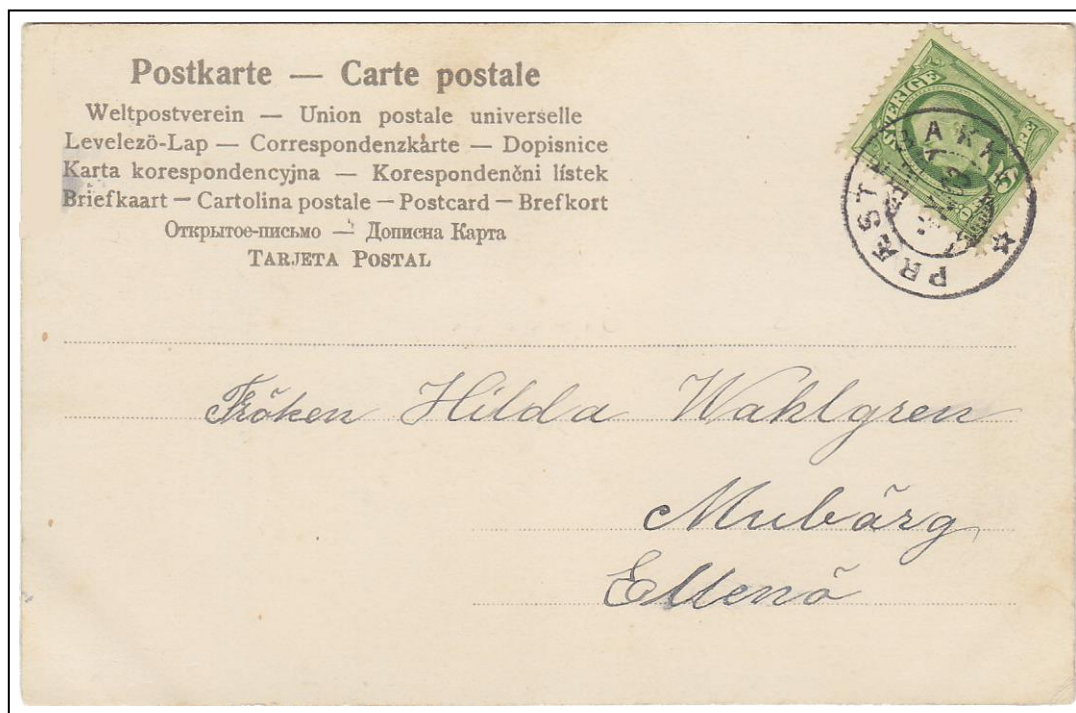 Postkarte — Carte postale
Weltpostverein — Union postale universelle
Levelezö-Lap — Correspondenzkarte — Dopisnice
Karta korespondencyjna — Korespondenčni lístek
Briefkaart — Cartolina postale — Postcard — Brefkort
Открытое-письмо — Дописна Карта
TARJETA POSTAL
SVERIGE
5
PRÆSTEBAKKE
Fröken Hilda Wahlgren
Mubärg
Ellenö